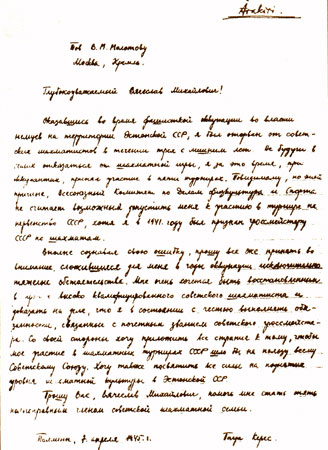 Ärakiri.
Тов В. М. Молотову
Москва, Кремль.
Глубокоуважаемый Вячеслав Михайлович!
Оказавшись во время фашистской оккупации во власти
немцев на территории Эстонской ССР, я был оторван от совет-
ских шахматистов в течении трех с лишним лет. Не будучи в
силах отказаться от шахматной игры, я за это время, при
оккупантах, принял участие в пяти турнирах. Повидимому, по этой
причине, Всесоюзный Комитет по Делам физкультуры и Спорта
не считает возможным допустить меня к участию в турнире на
первенство СССР, хотя я в 1941. году был признан гроссмейстеру
СССР по шахматам.
Вполне сознавая свою ошибку, прошу все же принять во
внимание, сложившиеся для меня в годы оккупации исключительно
тяжелые обстоятельства. Мне очень хочется быть восстановленным
в высоко квалифицированного советского шахматиста и
доказать на деле, что я в состоянии с честью выполнять обя-
занности, связанные с почетным званием советского гроссмейсте-
ра. Со своей стороны хочу приложить все старание к тому, чтобы
мое участие в шахматных турнирах СССР шло бы на пользу всему
Советскому Союзу. Хочу также посвятить все силы на поднятие
уровня шахматной культуры в Эстонской ССР
Прошу Вас, Вячеслав Михайлович, помочь мне стать опять
полноправным членом советской шахматной семьи.
Таллинн, 7. апреля 1945. г. Пауль Керес.